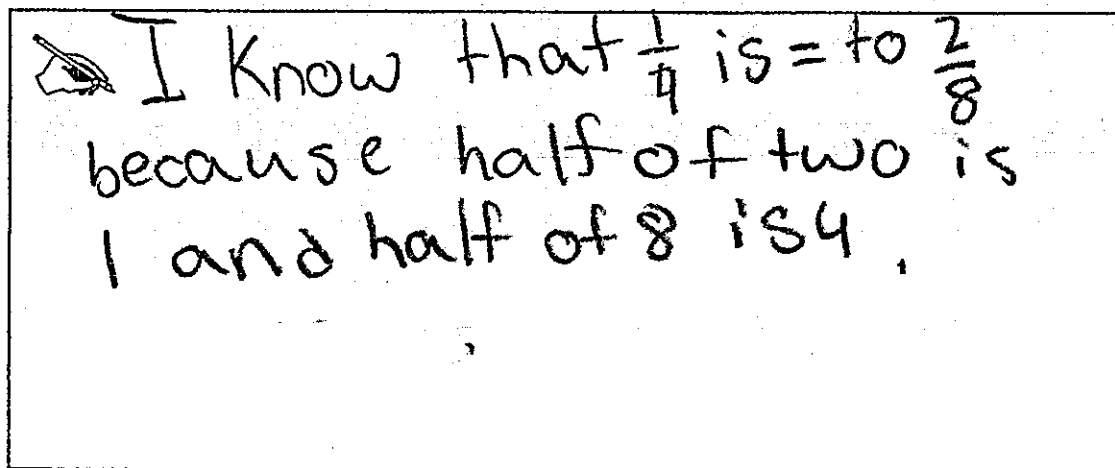 I Know that 1/4 is = to 2/8
because half of two is
1 and half of 8 is 4.